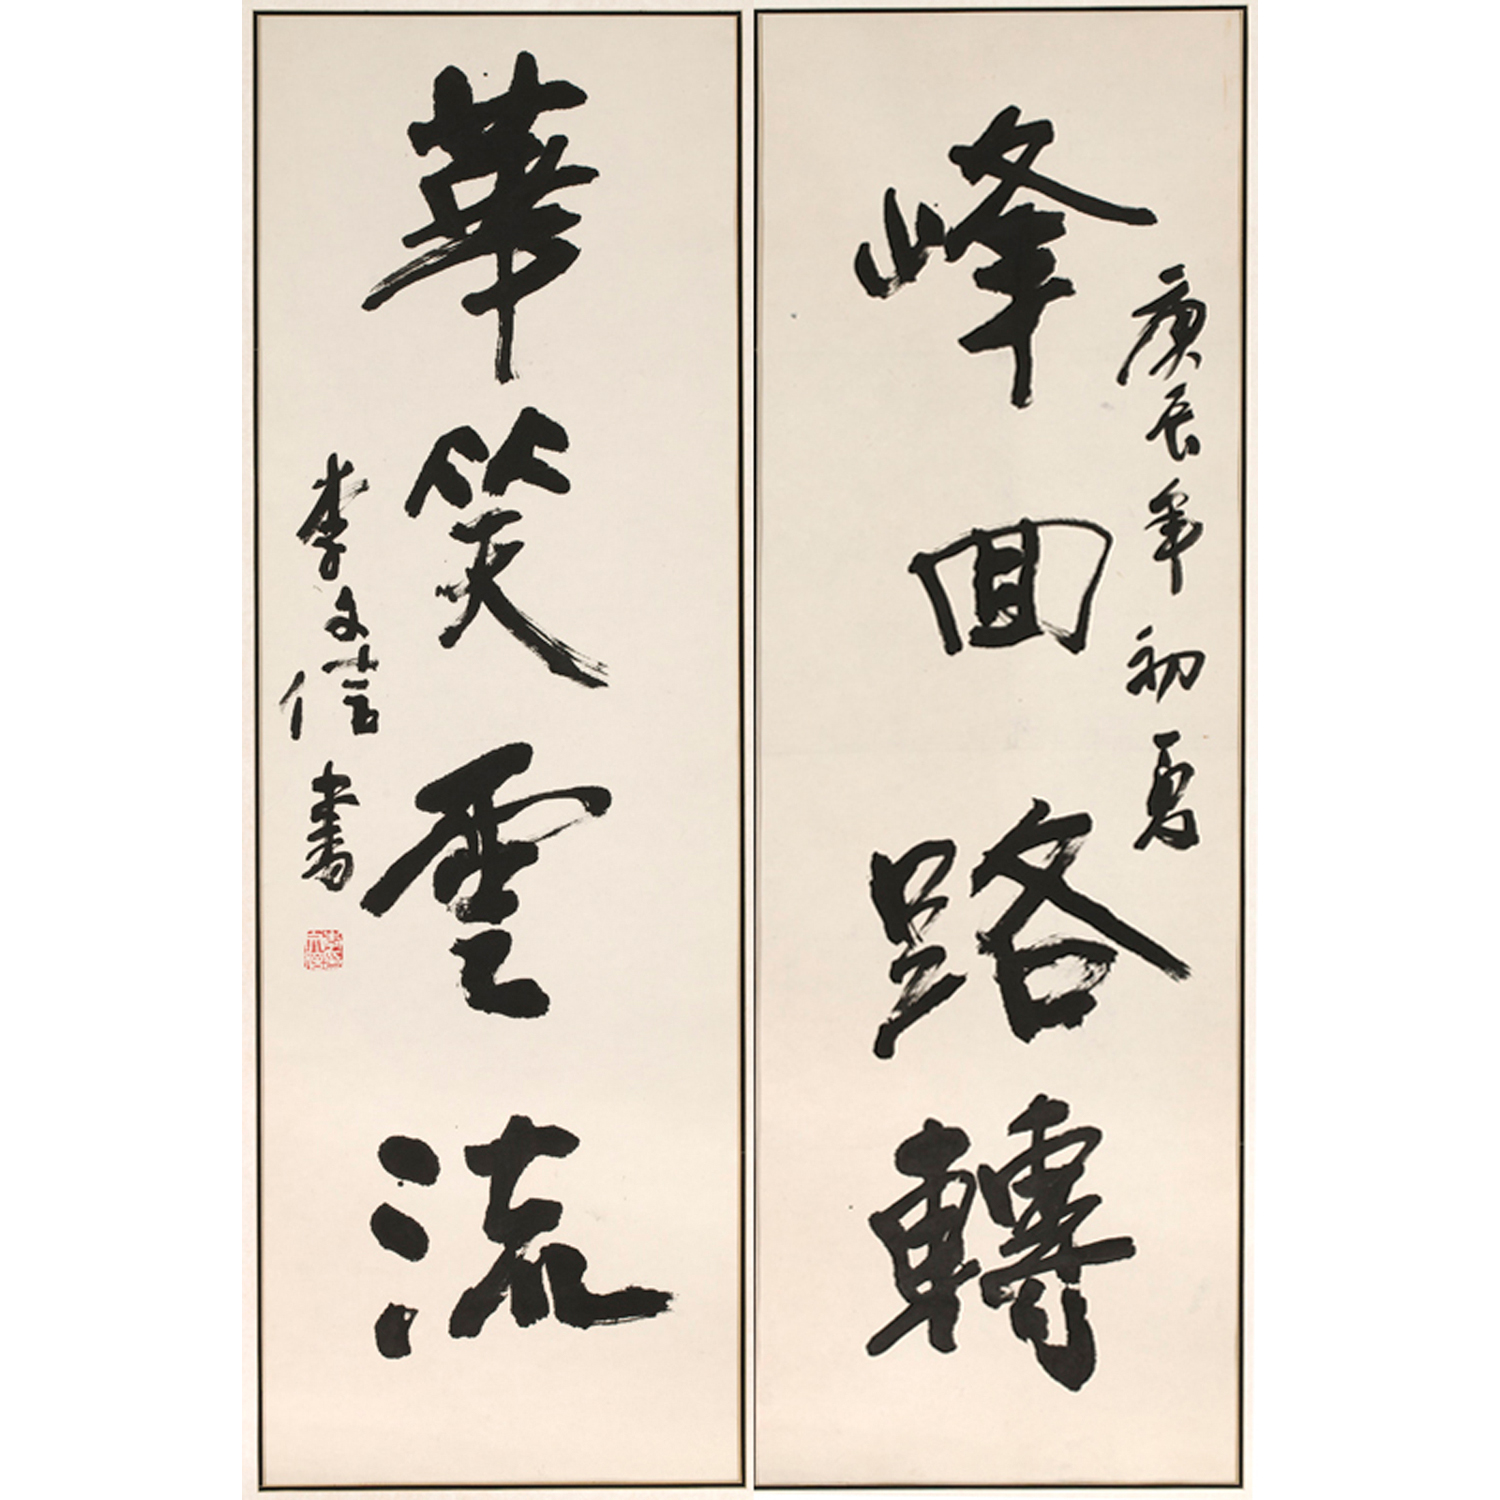 庚辰年初夏
峰回路轉
華笑雲流
李文信書